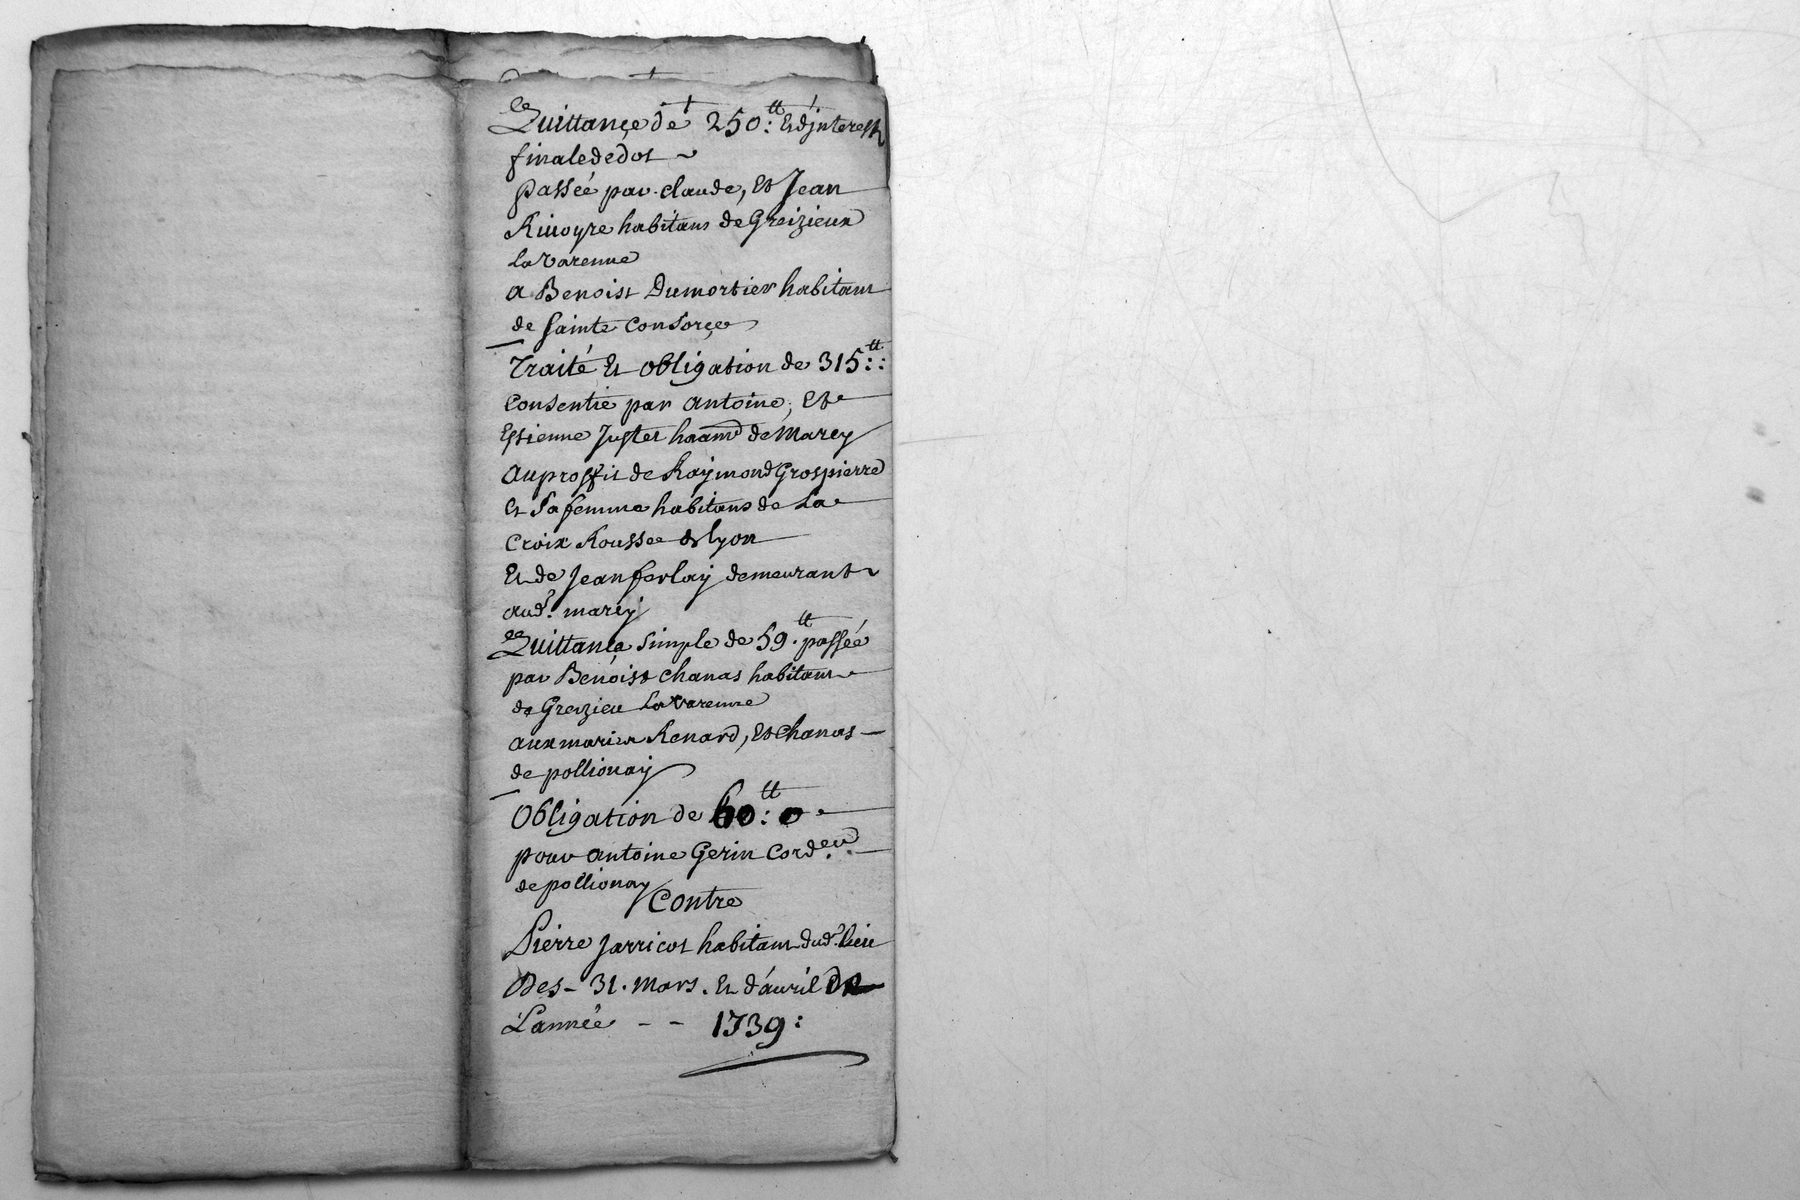 Quittançe de 250:tt Et d'jnterestz
finale de dot ~
passée par claude, Et Jean
Rivoyre habitans de Greizieux
la varenne
a Benoist Dumortier habitant
de sainte Consorçe
Traité Et obligation de 315:tt:
Consentie par antoine, Et
Estienne Juster de Marcy
au proffit de Raymond Grospierre
Et sa femme habitans de La
Croix Rousse de lyon
Et de Jean ferlay demeurant
aud.t marcy
Quittançe simple de 59.tt passée
par Benoist chanas habitant
de Greizieu la varenne
aux mariez Renard, Et chanas -
de pollionay
Obligation de 60:tt:0
pour antoine Gerin Cord.eur
de pollionay
Contre
Pierre Jarricot habitant dud.t lieu
Des - 31. mars. Et d'avril De
L'année - - 1739: